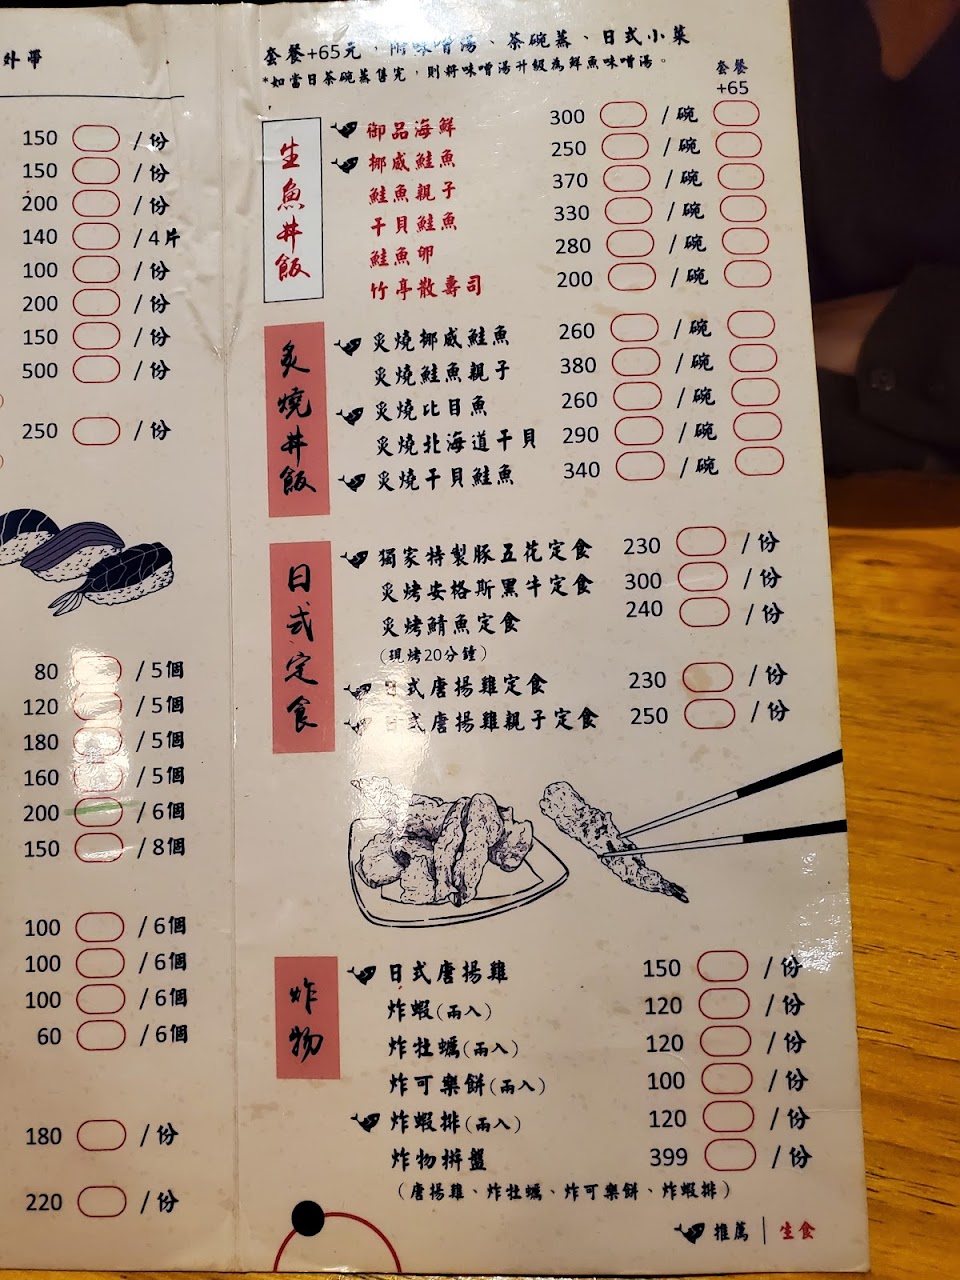 外帶
150 /份
150 /份
200 /份
140 /4片
100 /份
200 /份
150 /份
500 /份
250 /份
80 /5個
120 /5個
180 /5個
160 /5個
200 /6個
150 /8個
100 /6個
100 /6個
100 /6個
60 /6個
180 /份
220 /份
套餐+65元，附味噌湯、茶碗蒸、日式小菜
*如當日茶碗蒸售完，則將味噌湯升級為鮮魚味噌湯。
套餐
+65
生魚丼飯
御品海鮮 300 /碗
挪威鮭魚 250 /碗
鮭魚親子 370 /碗
干貝鮭魚 330 /碗
鮭魚卵 280 /碗
竹亭散壽司 200 /碗
炙燒丼飯
炙燒挪威鮭魚 260 /碗
炙燒鮭魚親子 380 /碗
炙燒比目魚 260 /碗
炙燒北海道干貝 290 /碗
炙燒干貝鮭魚 340 /碗
日式定食
獨家特製豚五花定食 230 /份
炙烤安格斯黑牛定食 300 /份
炙烤鯖魚定食 240 /份
(現烤20分鐘)
日式唐揚雞定食 230 /份
日式唐揚雞親子定食 250 /份
炸物
日式唐揚雞 150 /份
炸蝦(兩入) 120 /份
炸牡蠣(兩入) 120 /份
炸可樂餅(兩入) 100 /份
炸蝦排(兩入) 120 /份
炸物拼盤 399 /份
(唐揚雞、炸牡蠣、炸可樂餅、炸蝦排)
推薦｜生食